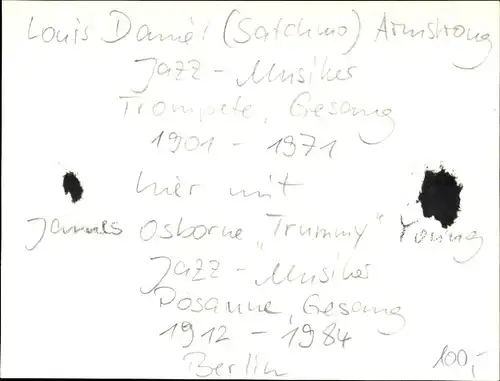 Louis Daniel (Satchmo) Armstrong
Jazz - Musiker
Trompete, Gesang
1901 - 1971
hier mit
James Osborne „Trummy“ Young
Jazz - Musiker
Posaune, Gesang
1912 - 1984
Berlin
100,-